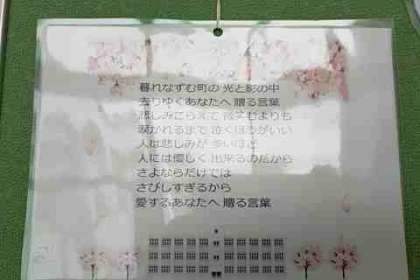 暮れなずむ町の 光と影の中
去りゆくあなたへ 贈る言葉
悲しみこらえて 微笑むよりも
涙かれるまで 泣くほうがいい
人は悲しみが 多いほど
人には優しく 出来るのだから
さよならだけでは
さびしすぎるから
愛するあなたへ 贈る言葉